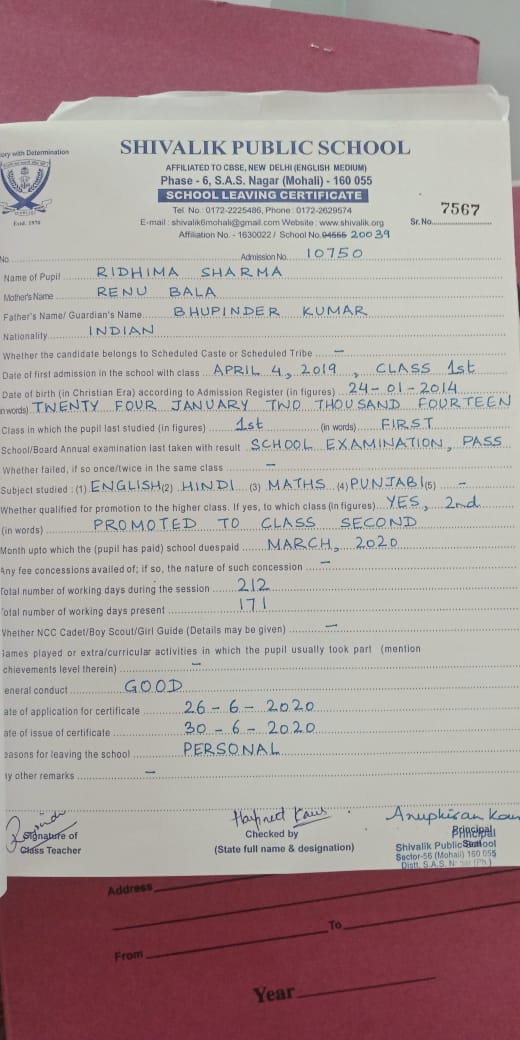 ory with Determination
Estd. 1970
SHIVALIK PUBLIC SCHOOL
AFFILIATED TO CBSE, NEW DELHI (ENGLISH MEDIUM)
Phase - 6, S.A.S. Nagar (Mohali) - 160 055
SCHOOL LEAVING CERTIFICATE
Tel. No : 0172-2225486, Phone : 0172-2629574
E-mail : shivalik6mohali@gmail.com Website : www.shivalik.org
Sr. No. 7567
Affiliation No. - 1630022 / School No. 04555 20039
No.
Admission No. 10750
Name of Pupil RIDHIMA SHARMA
Mother's Name RENU BALA
Father's Name/ Guardian's Name BHUPINDER KUMAR
Nationality INDIAN
Whether the candidate belongs to Scheduled Caste or Scheduled Tribe —
Date of first admission in the school with class APRIL 4, 2019, CLASS 1st
Date of birth (in Christian Era) according to Admission Register (in figures) 24-01-2014
in words) TWENTY FOUR JANUARY TWO THOUSAND FOURTEEN
Class in which the pupil last studied (in figures) 1st (in words) FIRST
School/Board Annual examination last taken with result SCHOOL EXAMINATION, PASS
Whether failed, if so once/twice in the same class —
Subject studied : (1) ENGLISH (2) HINDI (3) MATHS (4) PUNJABI (5) —
Whether qualified for promotion to the higher class. If yes, to which class (in figures) YES, 2nd
(in words) PROMOTED TO CLASS SECOND
Month upto which the (pupil has paid) school duespaid MARCH, 2020
Any fee concessions availed of; if so, the nature of such concession —
Total number of working days during the session 212
Total number of working days present 171
Whether NCC Cadet/Boy Scout/Girl Guide (Details may be given) —
Games played or extra/curricular activities in which the pupil usually took part (mention
chievements level therein) —
eneral conduct GOOD
ate of application for certificate 26-6-2020
ate of issue of certificate 30-6-2020
easons for leaving the school PERSONAL
ny other remarks —
Harpreet Kaur
Anupkiran Kou
Signature of
Class Teacher
Checked by
(State full name & designation)
Principal
Principal
Shivalik Public School
Sector-56 (Mohali) 160 055
Distt. S.A.S. (Pb.)
Address
To
From
Year